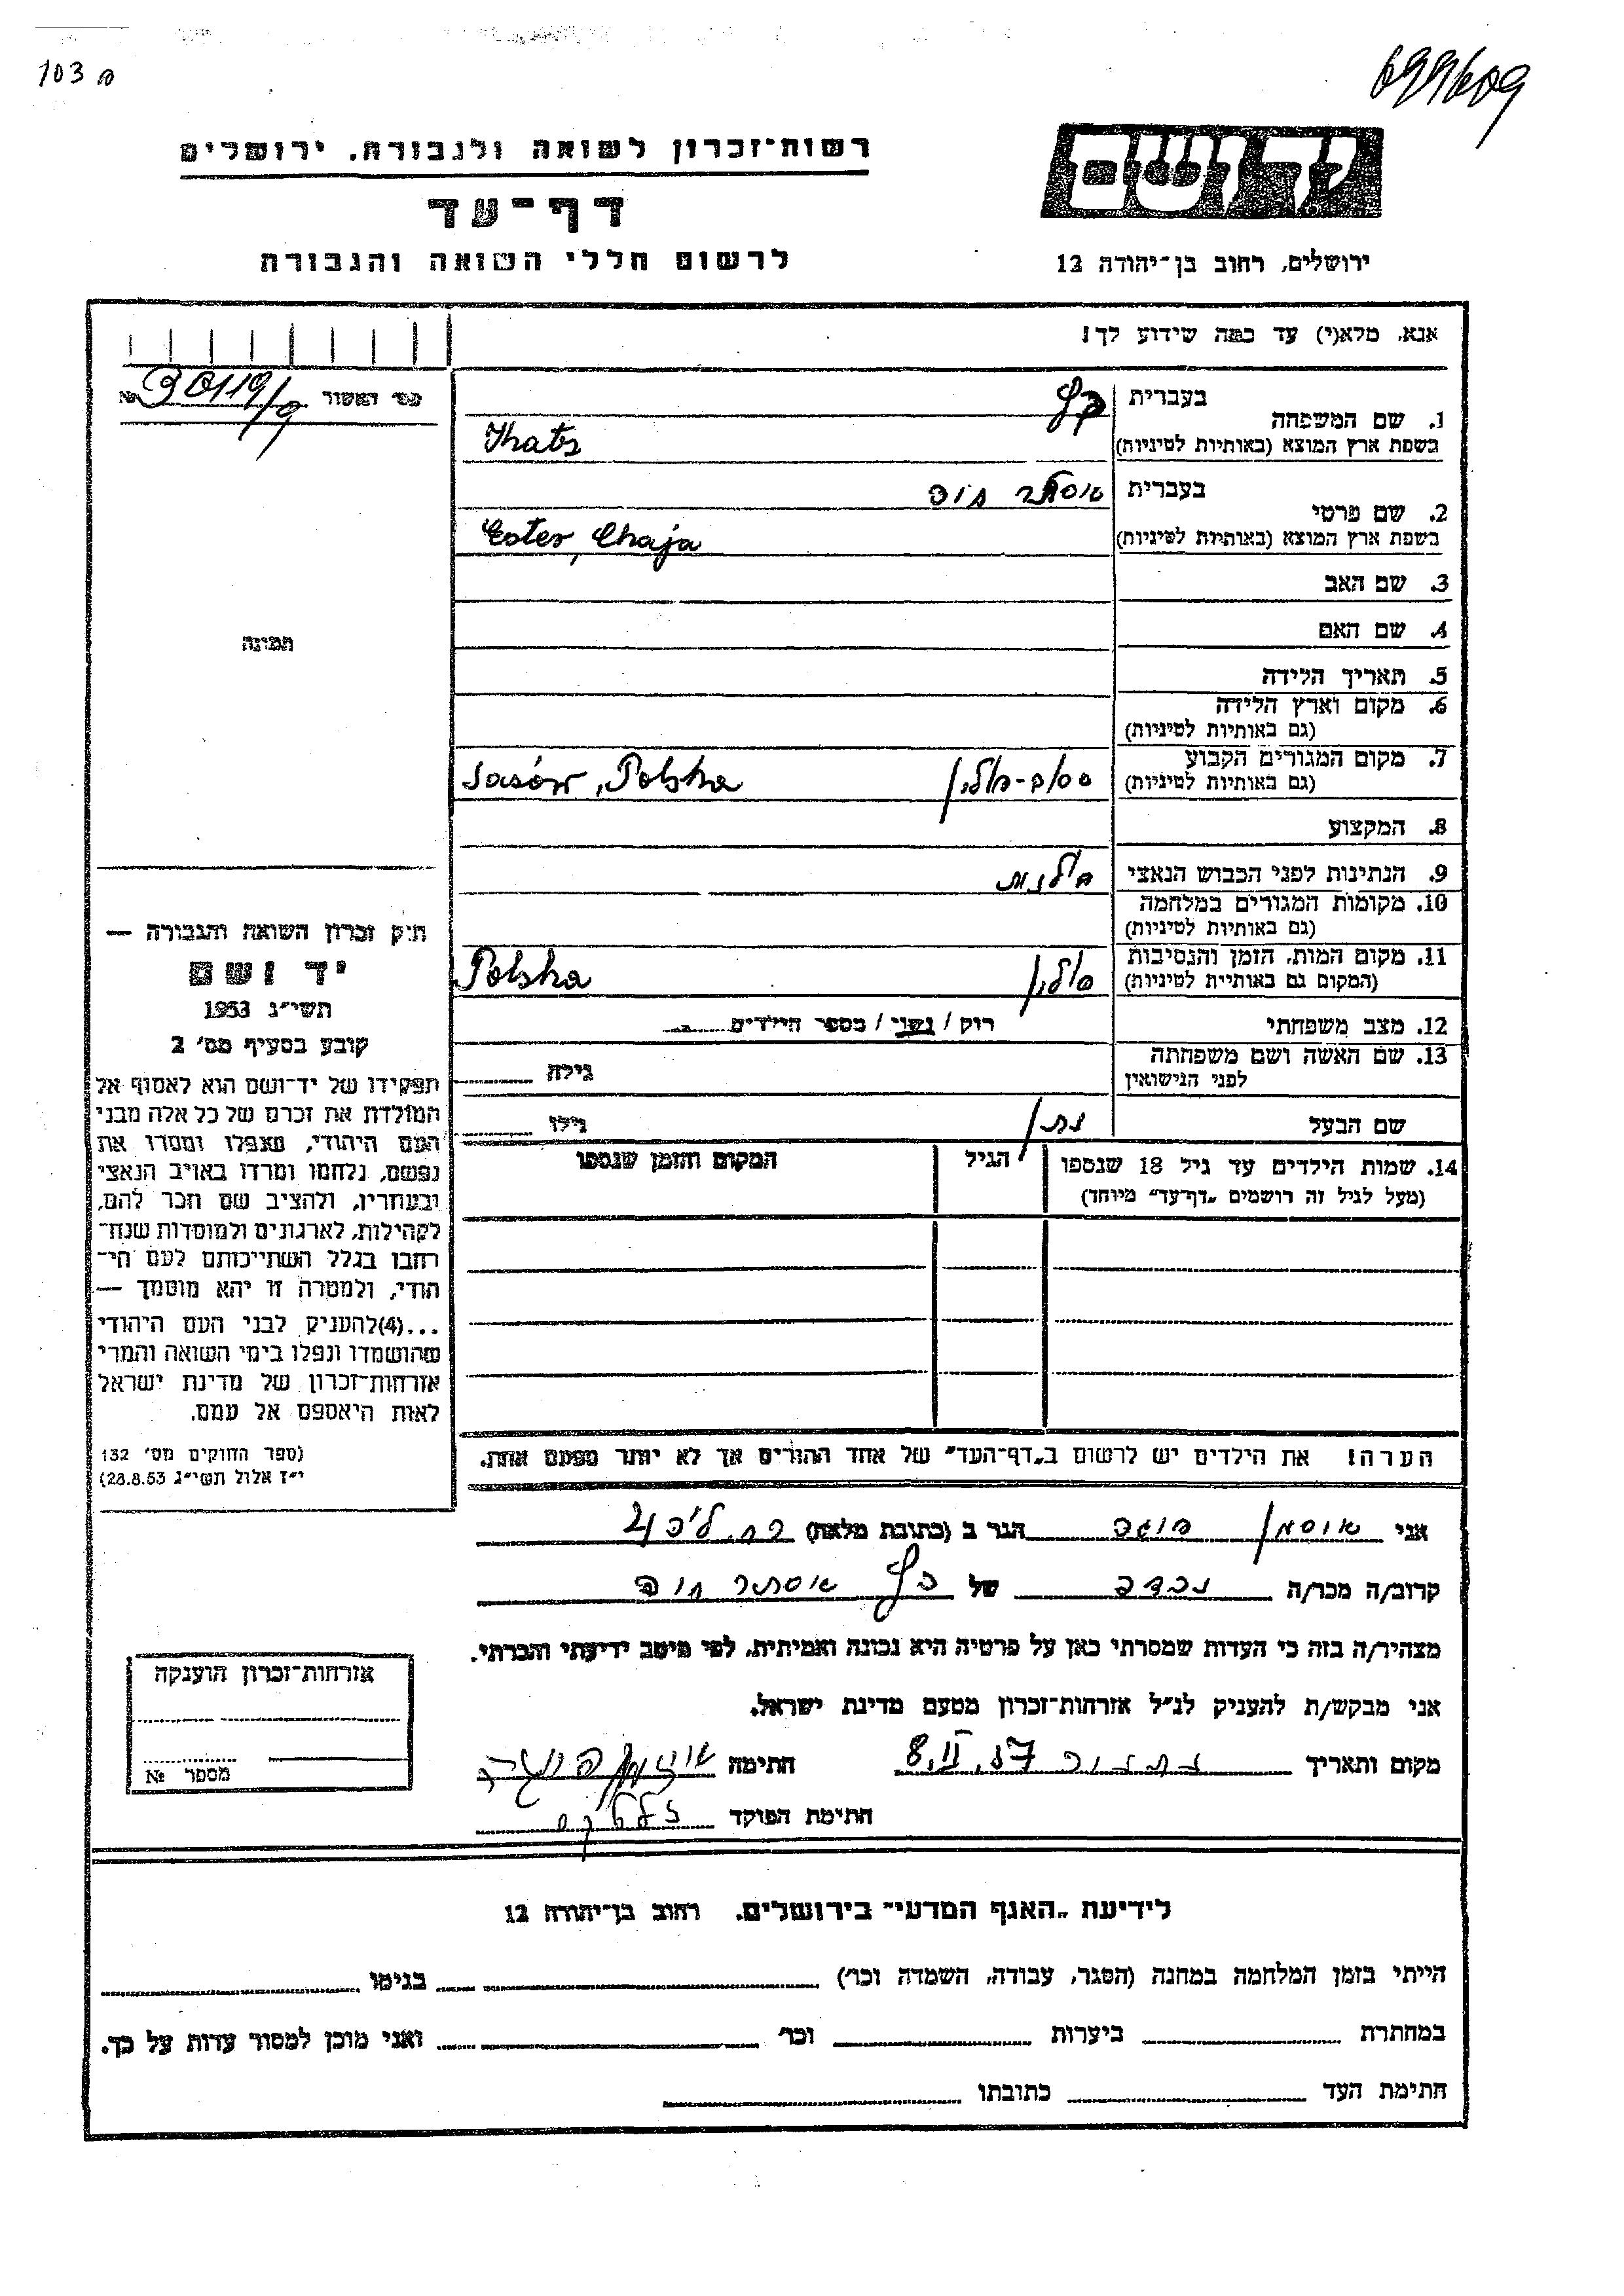 699609
רשות־זכרון לשואה ולגבורה, ירושלים
דף־עד
לרשום חללי השואה והגבורה
ידושם
ירושלים, רחוב בן־יהודה 12
אנא, מלא(י) עד כמה שידוע לך!
מס׳ האשור № 30119/9
תמונה
1. שם המשפחה
בעברית כץ
בשפת ארץ המוצא (באותיות לטיניות) Khats
2. שם פרטי
בעברית אסתר חיה
בשפת ארץ המוצא (באותיות לטיניות) Ester, Chaja
3. שם האב
4. שם האם
5. תאריך הלידה
6. מקום וארץ הלידה
(גם באותיות לטיניות)
7. מקום המגורים הקבוע
(גם באותיות לטיניות) פולין Sasów, Polska
8. המקצוע
9. הנתינות לפני הכבוש הנאצי פולנית
10. מקומות המגורים במלחמה
(גם באותיות לטיניות)
11. מקום המות, הזמן והנסיבות
(המקום גם באותיות לטיניות) פולין Polska
12. מצב משפחתי רוק / נשוי / מספר הילדים
13. שם האשה ושם משפחתה
לפני הנישואין גילה
שם הבעל נתן גילו
14. שמות הילדים עד גיל 18 שנספו הגיל המקום והזמן שנספו
(מעל לגיל זה רושמים „דף־עד״ מיוחד)
הערה! את הילדים יש לרשום ב„דף־העד״ של אחד ההורים אך לא יותר מפעם אחת.
חוק זכרון השואה והגבורה —
יד ושם
תשי״ג 1953
קובע בסעיף מס׳ 2
תפקידו של יד־ושם הוא לאסוף אל
המולדת את זכרם של כל אלה מבני
העם היהודי, שנפלו ומסרו את
נפשם, נלחמו ומרדו באויב הנאצי
ובעוזריו, ולהציב שם וזכר להם,
לקהילות, לארגונים ולמוסדות שנח־
רבו בגלל השתייכותם לעם הי־
הודי, ולמטרה זו יהא מוסמך —
...(4)להעניק לבני העם היהודי
שהושמדו ונפלו בימי השואה והמרי
אזרחות־זכרון של מדינת ישראל
לאות היאספם אל עמם.
(ספר החוקים מס׳ 132
י״ז אלול תשי״ג 28.8.53)
אני הגר ב (כתובת מלאה)
קרוב/ה מכר/ה נכדה של כץ אסתר חיה
מצהיר/ה בזה כי העדות שמסרתי כאן על פרטיה היא נכונה ואמיתית, לפי מיטב ידיעתי והכרתי.
אני מבקש/ת להעניק לנ״ל אזרחות־זכרון מטעם מדינת ישראל.
מקום ותאריך נתניה 8.II.57 חתימה
חתימת הפוקד
אזרחות־זכרון הוענקה
מספר №
לידיעת „האגף המדעי״ בירושלים. רחוב בן־יהודה 12
הייתי בזמן המלחמה במחנה (הסגר, עבודה, השמדה וכר׳) בגיטו
במחתרת ביערות וכר׳ ואני מוכן למסור עדות על כך.
חתימת העד כתובתו